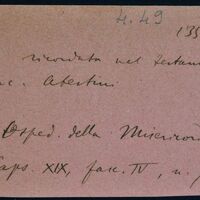 4.49
135
ricordata nel testam
Abertini
Osped. della Misericord
Caps. XIX, fasc. IV, n.